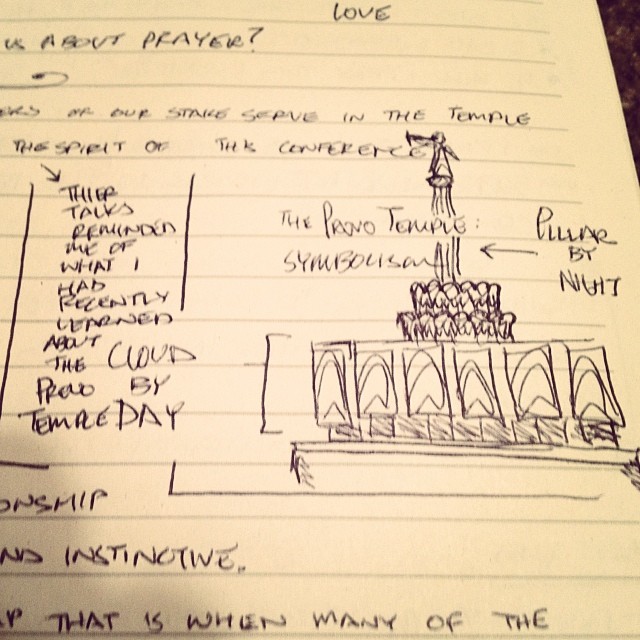 LOVE
US ABOUT PRAYER?
OF OUR STAKE SERVE IN THE TEMPLE
THE SPIRIT OF THIS CONFERENCE
THIER
TALKS
REMINDED
ME OF
WHAT I
HAD
RECENTLY
LEARNED
ABOUT
THE
PROVO
TEMPLE
CLOUD
BY
DAY
THE PROVO TEMPLE:
SYMBOLISM
PILLAR
BY
NIGHT
ONSHIP
ND INSTINCTIVE.
AP THAT IS WHEN MANY OF THE